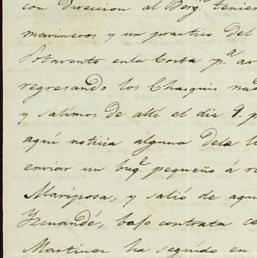 con Direccion al Berg.n tenien
marineros y un practico del
Sotavento en la Costa p.a av
regresando los Chasquis na
y salimos de allí el dia 9. p
aquí noticia alguna dela l
enviar un buq.e pequeño á re
Mariposa, y salió de aqu
Fernandé, bajo contrata ce
Martinez ha seguido en